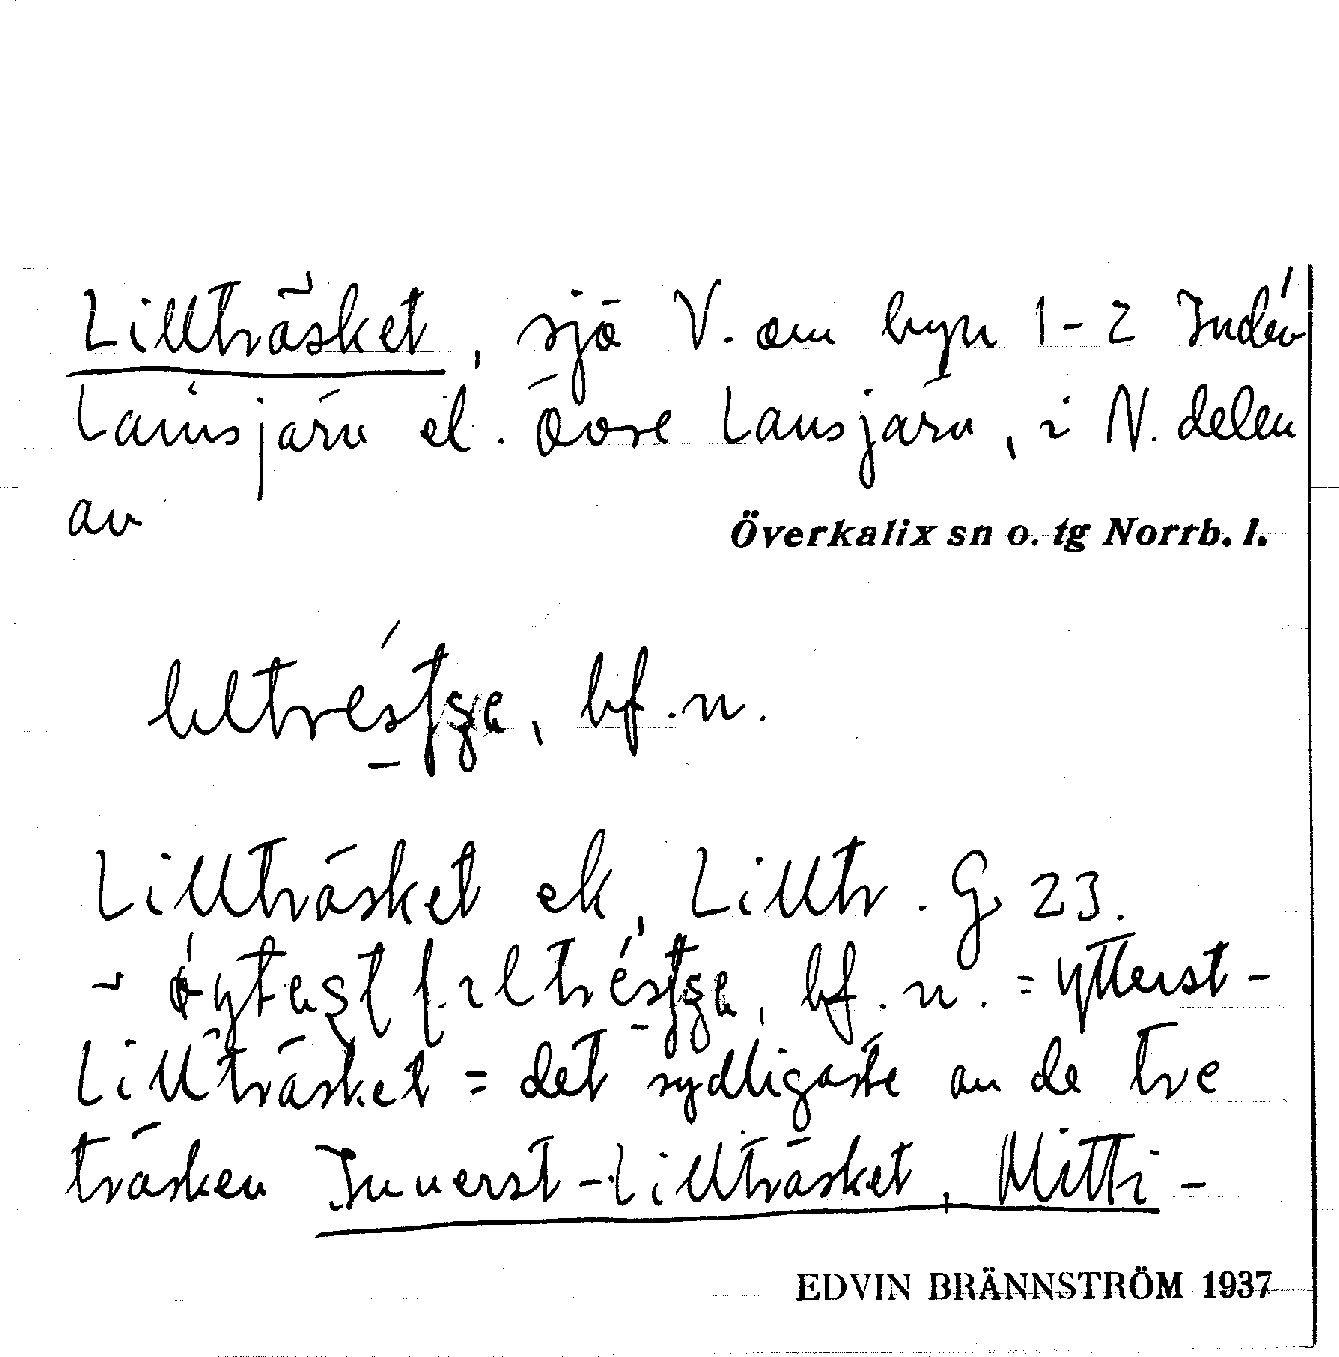 Lillträsket, sjö V. om byn 1-2 Indeˊn
Lansjärv el. Övre Lansjärv, i N. delen
av
Överkalix sn o. tg Norrb. l.
bf. n.
Lillträsket ek, Lilltr. G 23.
bf. n. = ytterst-
Lillträsket = det sydligaste av de tre
träsken Innerst-Lillträsket, Mitti-
EDVIN BRÄNNSTRÖM 1937